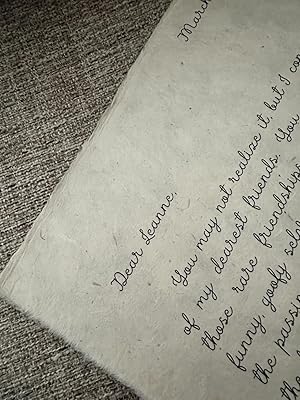 March
Dear Leanne,
You may not realize it, but I
of my dearest friends. You
those rare friendships
funny, goofy
the
the